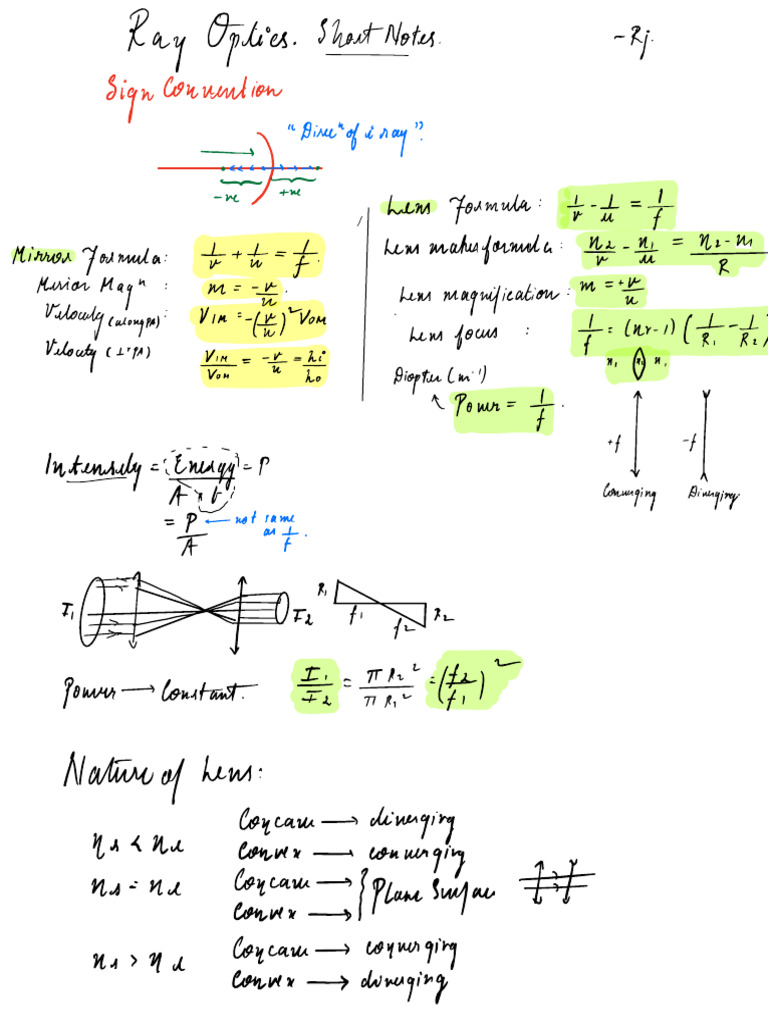 Ray Optics. Short Notes. -Rj.
Sign Convention
"Direcⁿ of i ray".
-ve +ve
Mirror Formula: 1/v + 1/u = 1/f.
Mirror Magⁿ : m = -v/u
Velocity (along PA): V_IM = -(v/u)² V_OM
Velocity (⊥ʳ PA) V_IM/V_OM = -v/u = hi/ho
Lens Formula: 1/v - 1/u = 1/f
Lens makers formula: n2/v - n1/u = n2-n1/R
Lens magnification: m = +v/u
Lens focus : 1/f = (nr-1) (1/R1 - 1/R2)
n1 n2 n1
Diopter (m⁻¹)
Power = 1/f.
+f -f
Converging Diverging
Intensity = Energy/A × t = P
= P/A ← not same as 1/f.
I1 I2 R1 f1 f2 R2
Power → Constant. I1/I2 = πR2²/πR1² = (f2/f1)²
Nature of Lens:
ns < nl Concave → diverging
Convex → converging
ns = nl Concave → } Plane Surface
Convex →
ns > nl Concave → converging
Convex → diverging